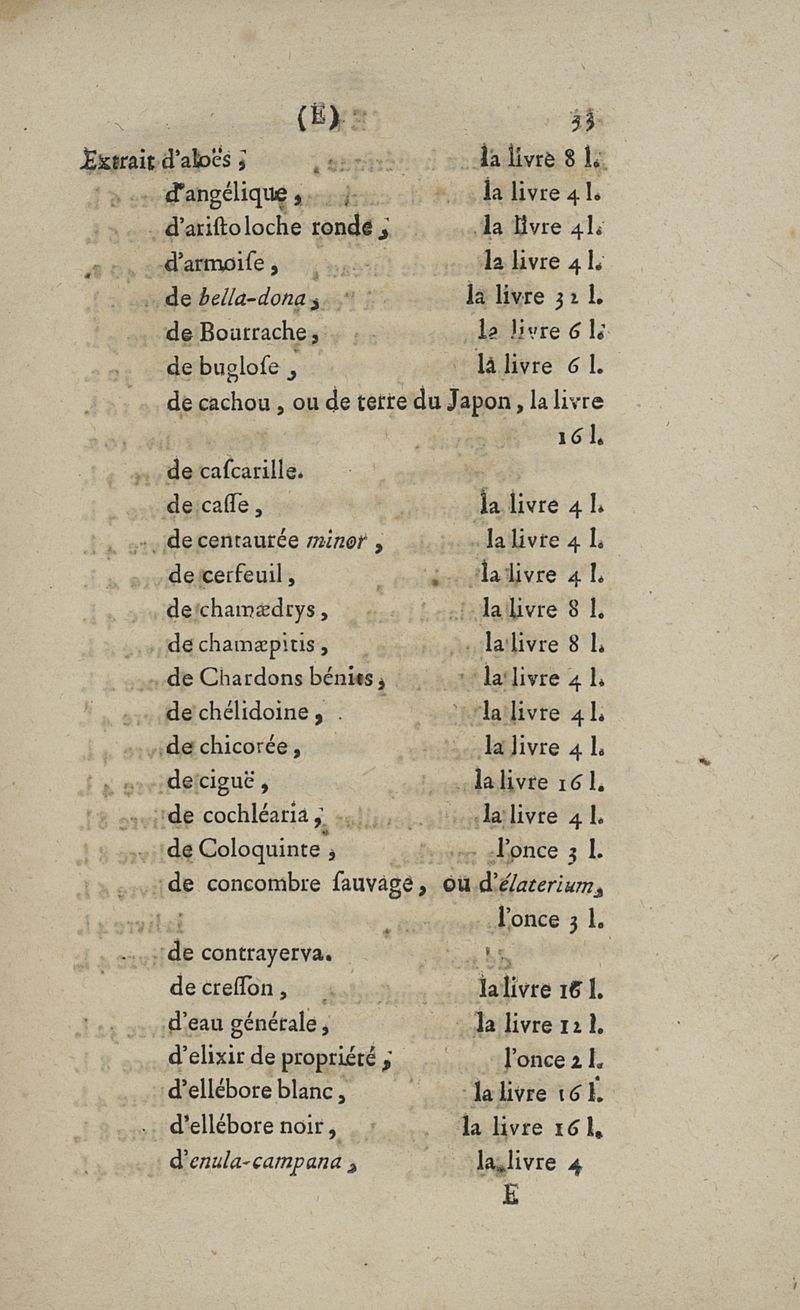 (E) 33
Extrait d'aloës, la livre 8 l.
d'angélique, la livre 4 l.
d'ariſtoloche ronde, la livre 4 l.
d'armoiſe, la livre 4 l.
de bella-dona, la livre 32 l.
de Bourrache, la livre 6 l.
de bugloſe, la livre 6 l.
de cachou, ou de terre du Japon, la livre
16 l.
de caſcarille.
de caſſe, la livre 4 l.
de centaurée minor, la livre 4 l.
de cerfeuil, la livre 4 l.
de chamædrys, la livre 8 l.
de chamæpitis, la livre 8 l.
de Chardons bénits, la livre 4 l.
de chélidoine, la livre 4 l.
de chicorée, la livre 4 l.
de ciguë, la livre 16 l.
de cochléaria, la livre 4 l.
de Coloquinte, l'once 3 l.
de concombre ſauvage, ou d'élaterium,
l'once 3 l.
de contrayerva.
de creſſon, la livre 16 l.
d'eau générale, la livre 12 l.
d'elixir de propriété, l'once 2 l.
d'ellébore blanc, la livre 16 l.
d'ellébore noir, la livre 16 l.
d'enula-campana, la livre 4
E